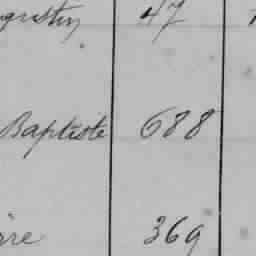 gustin 47
Baptiste 688
rre 369